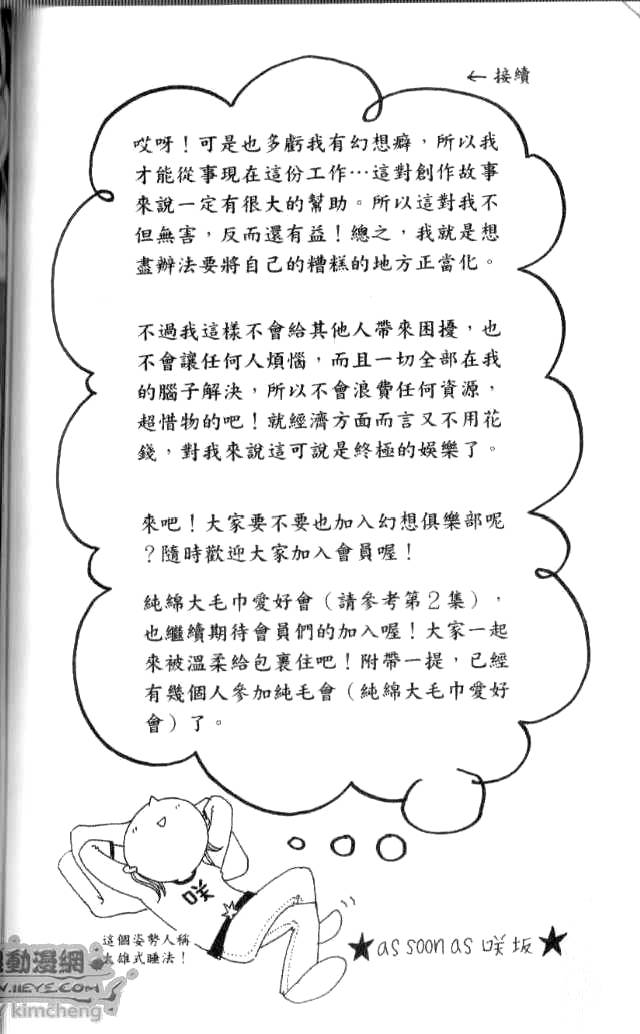 ← 接續
哎呀！可是也多虧我有幻想癖，所以我
才能從事現在這份工作…這對創作故事
來說一定有很大的幫助。所以這對我不
但無害，反而還有益！總之，我就是想
盡辦法要將自己的糟糕的地方正當化。
不過我這樣不會給其他人帶來困擾，也
不會讓任何人煩惱，而且一切全部在我
的腦子解決，所以不會浪費任何資源，
超惜物的吧！就經濟方面而言又不用花
錢，對我來說這可說是終極的娛樂了。
來吧！大家要不要也加入幻想俱樂部呢
？隨時歡迎大家加入會員喔！
純綿大毛巾愛好會（請參考第2集），
也繼續期待會員們的加入喔！大家一起
來被溫柔給包裹住吧！附帶一提，已經
有幾個人參加純毛會（純綿大毛巾愛好
會）了。
咲
這個姿勢人稱
太雄式睡法！
★as soon as 咲坂★
動漫網
WWW.IIEYE.COM
kimcheng